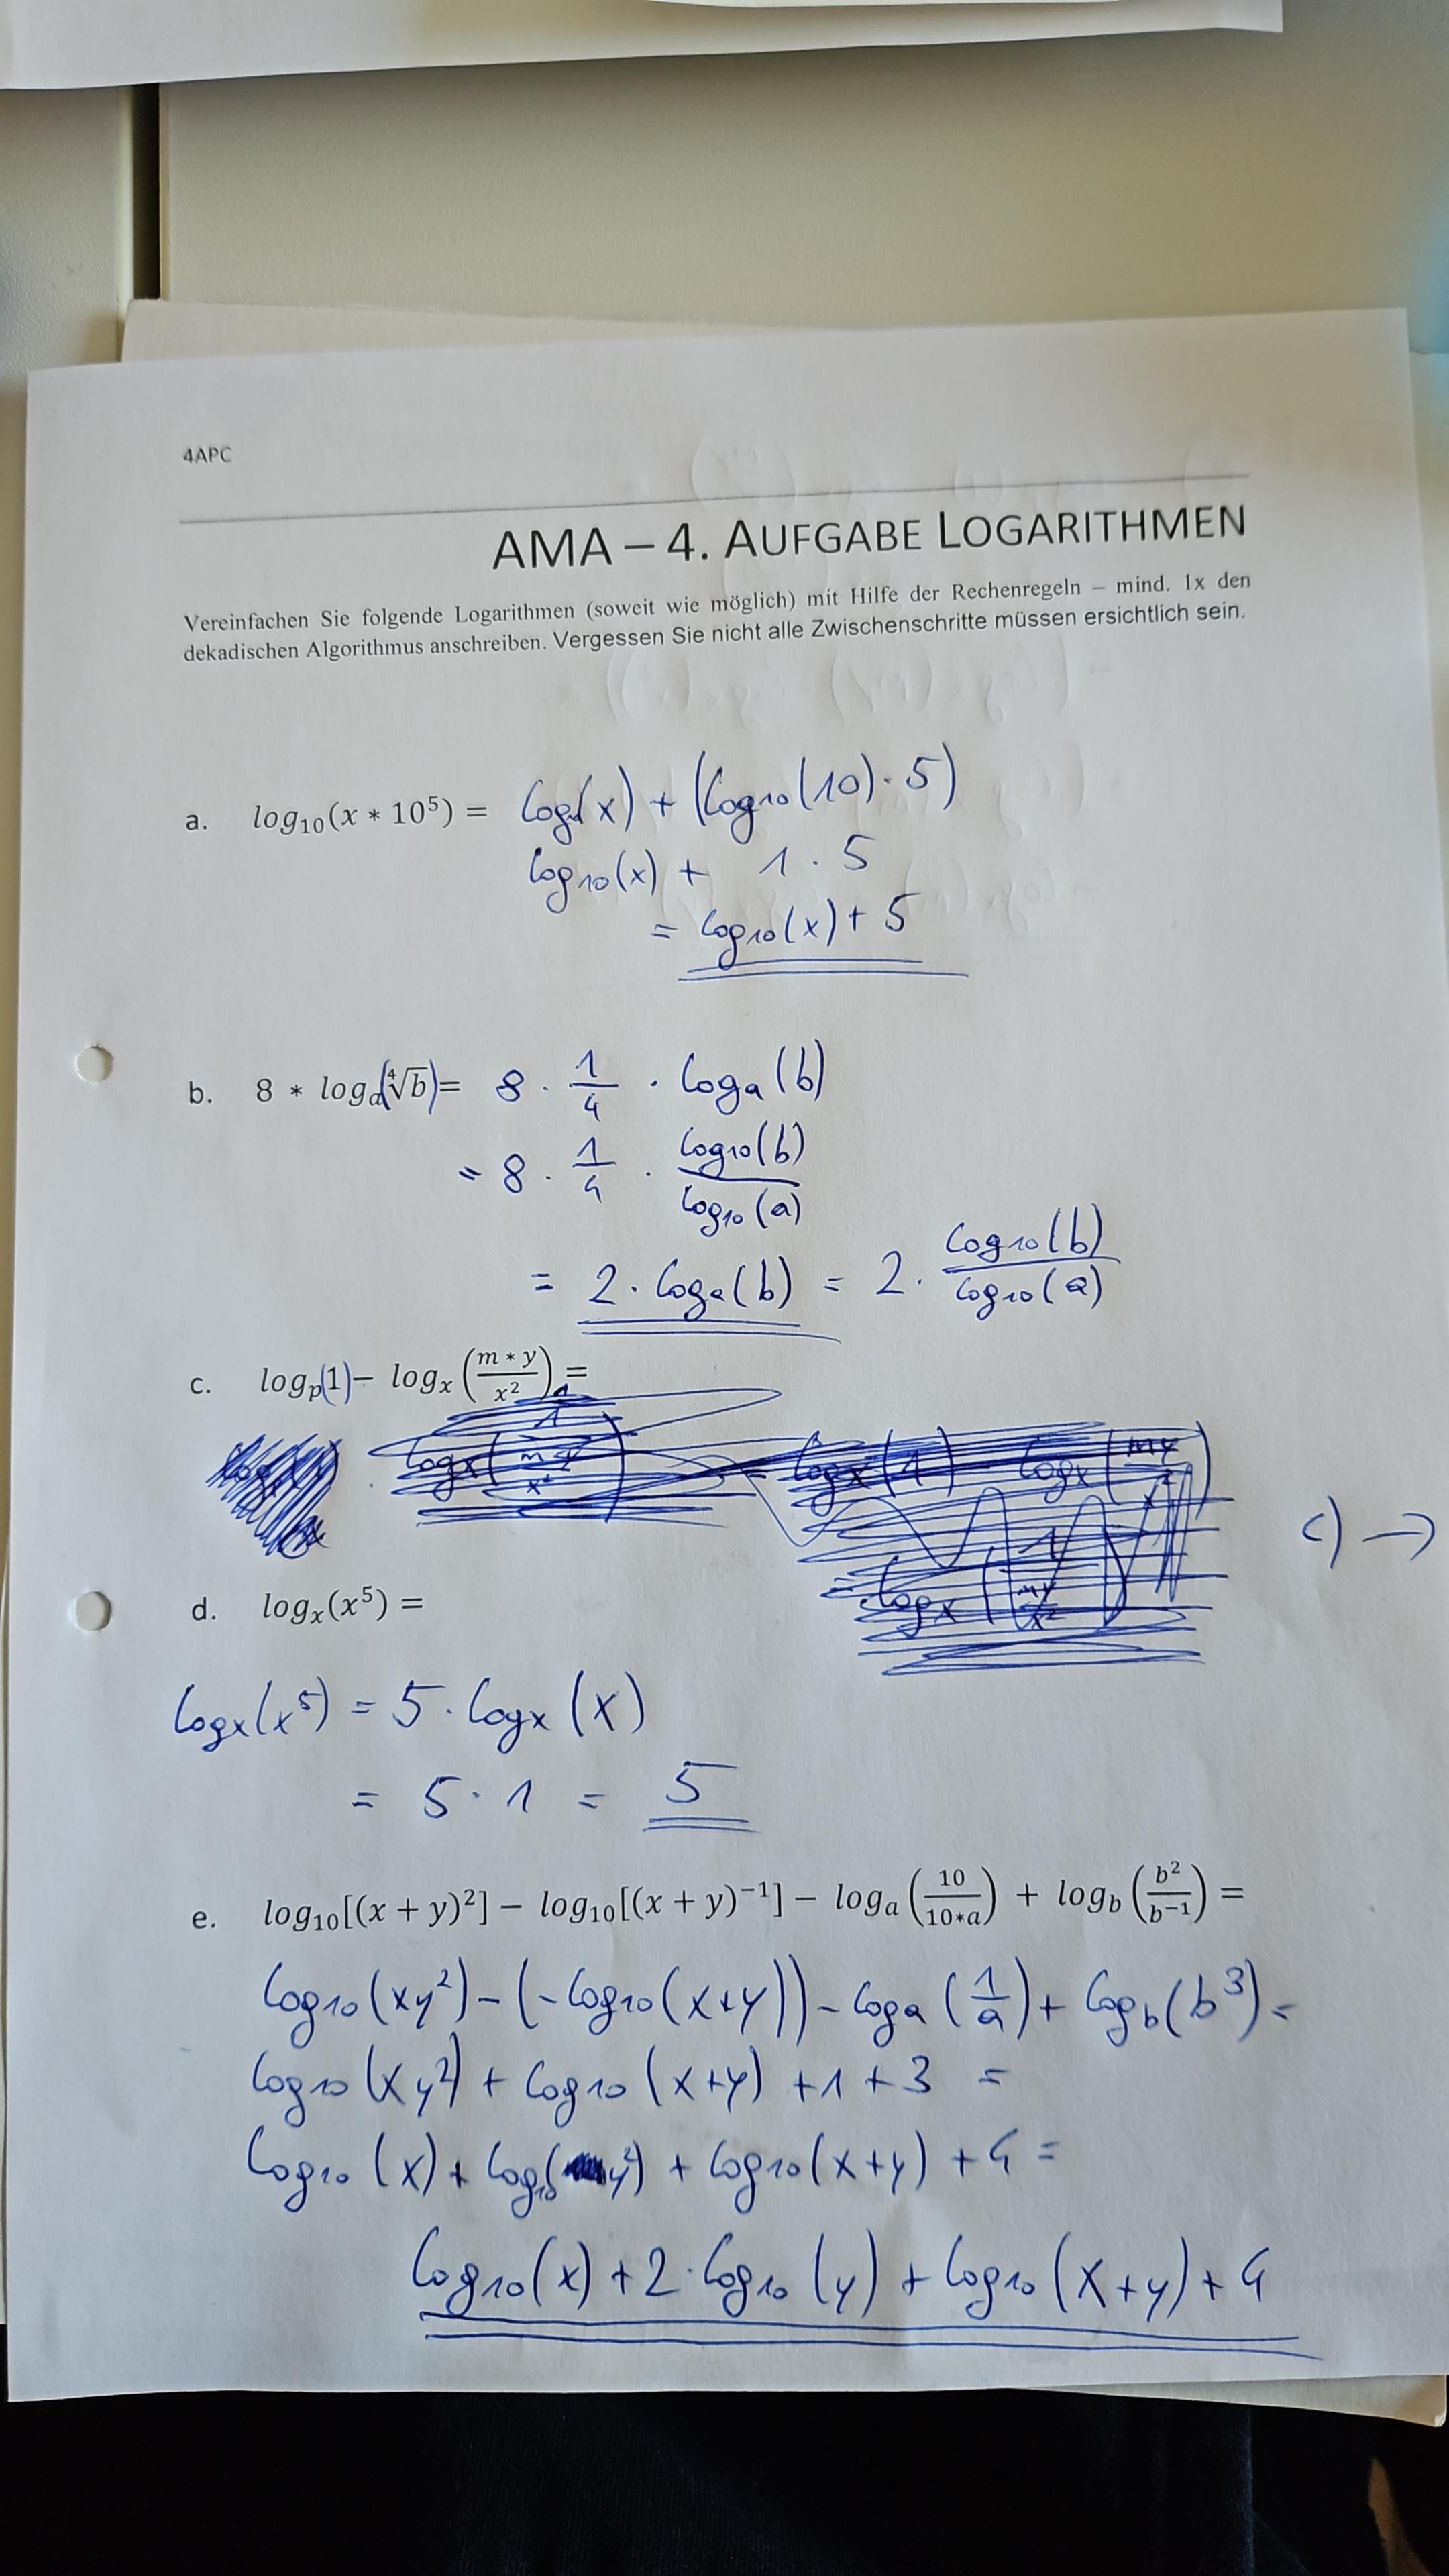 4APC
AMA – 4. AUFGABE LOGARITHMEN
Vereinfachen Sie folgende Logarithmen (soweit wie möglich) mit Hilfe der Rechenregeln – mind. 1x den
dekadischen Algorithmus anschreiben. Vergessen Sie nicht alle Zwischenschritte müssen ersichtlich sein.
a. log₁₀(x * 10⁵) = log(x) + (log₁₀(10) · 5)
log₁₀(x) + 1 · 5
= log₁₀(x) + 5
b. 8 * logₐ(⁴√b) = 8 · 1/4 · logₐ(b)
= 8 · 1/4 · log₁₀(b)/log₁₀(a)
= 2 · logₐ(b) = 2 · log₁₀(b)/log₁₀(a)
c. logₚ(1) – logₓ(m * y / x²) =
c) →
d. logₓ(x⁵) =
logₓ(x⁵) = 5 · logₓ(x)
= 5 · 1 = 5
e. log₁₀[(x + y)²] – log₁₀[(x + y)⁻¹] – logₐ(10/(10*a)) + log_b(b²/b⁻¹) =
log₁₀(xy²) – (–log₁₀(x+y)) – logₐ(1/a) + log_b(b³) =
log₁₀(xy²) + log₁₀(x+y) + 1 + 3 =
log₁₀(x) + log₁₀(y²) + log₁₀(x+y) + 4 =
log₁₀(x) + 2 · log₁₀(y) + log₁₀(x+y) + 4